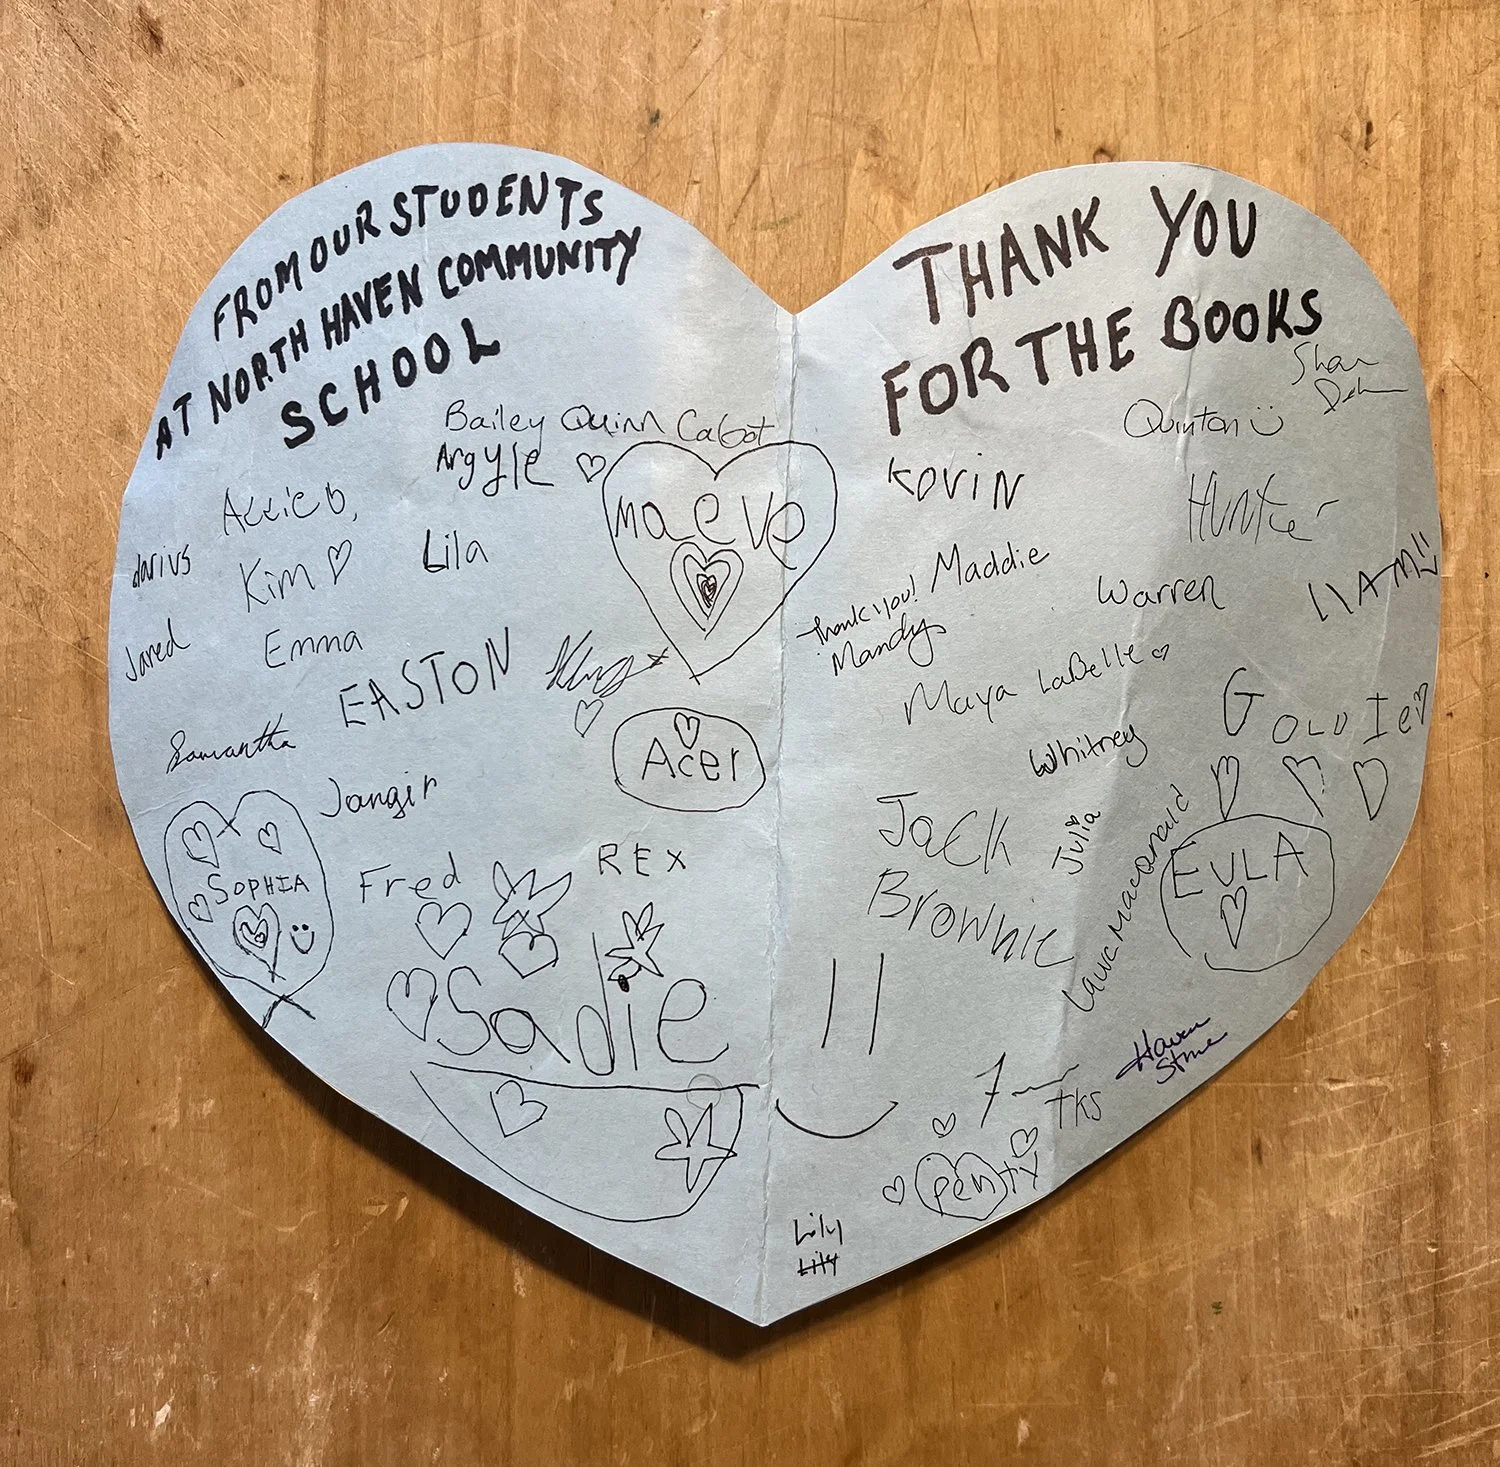 FROM OUR STUDENTS
AT NORTH HAVEN COMMUNITY
SCHOOL
Bailey Quinn Cabot
Argyle
maeve
darius
Kim
Lila
Jared
Emma
EASTON
Samantha
Acer
Jangir
SOPHIA
Fred
REX
Sadie
THANK YOU
FOR THE BOOKS
Quinton
KOVIN
Hunter
Maddie
Thank you!
Mandy
Warren
LIAM
Maya LaBelle
GOLDIE
Whitney
Jack
Brownie
Julia
Laura Macdonald
EULA
Haven
Stone
TKS
penty
Lily
Lily